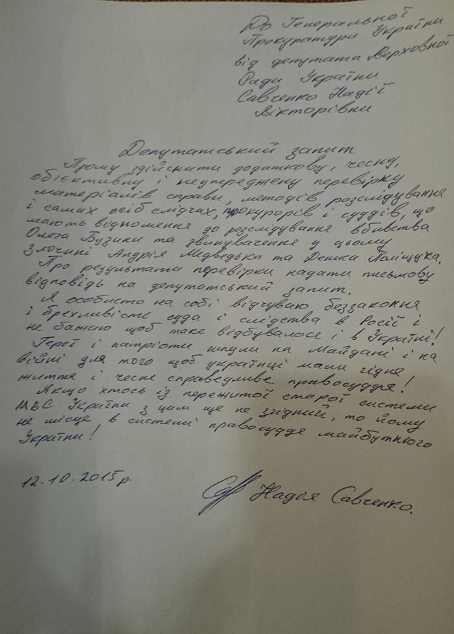 До Генеральної
Прокуратури України
від депутата Верховної
Ради України
Савченко Надії
Вікторівни
Депутатський запит
Прошу здійснити додаткову, чесну,
обієктивну і неупереджену перевірку
матеріалів справи, методів розслідування
і самих осіб слідчих, прокурорів і суддів, що
мають відношення до розслідування вбивства
Олега Бузини та звинувачення у цьому
злочині Андрія Медведька та Дениса Поліщука.
Про результати перевірки надати письмову
відповідь на депутатський запит.
Я особисто на собі відчуваю беззаконня
і брехливість суда і слідства в Росії і
не бажаю щоб таке відбувалося і в Україні!
Герої і патріоти йшли на Майдані і на
війні для того щоб українці мали гідне
життя і чесне справедливе правосуддя!
Якщо хтось із пережитої старої системи
МВС України з цим ще не згідний, то йому
не місце в системі правосуддя майбутнього
України!
12.10.2015 р.
Надія Савченко.